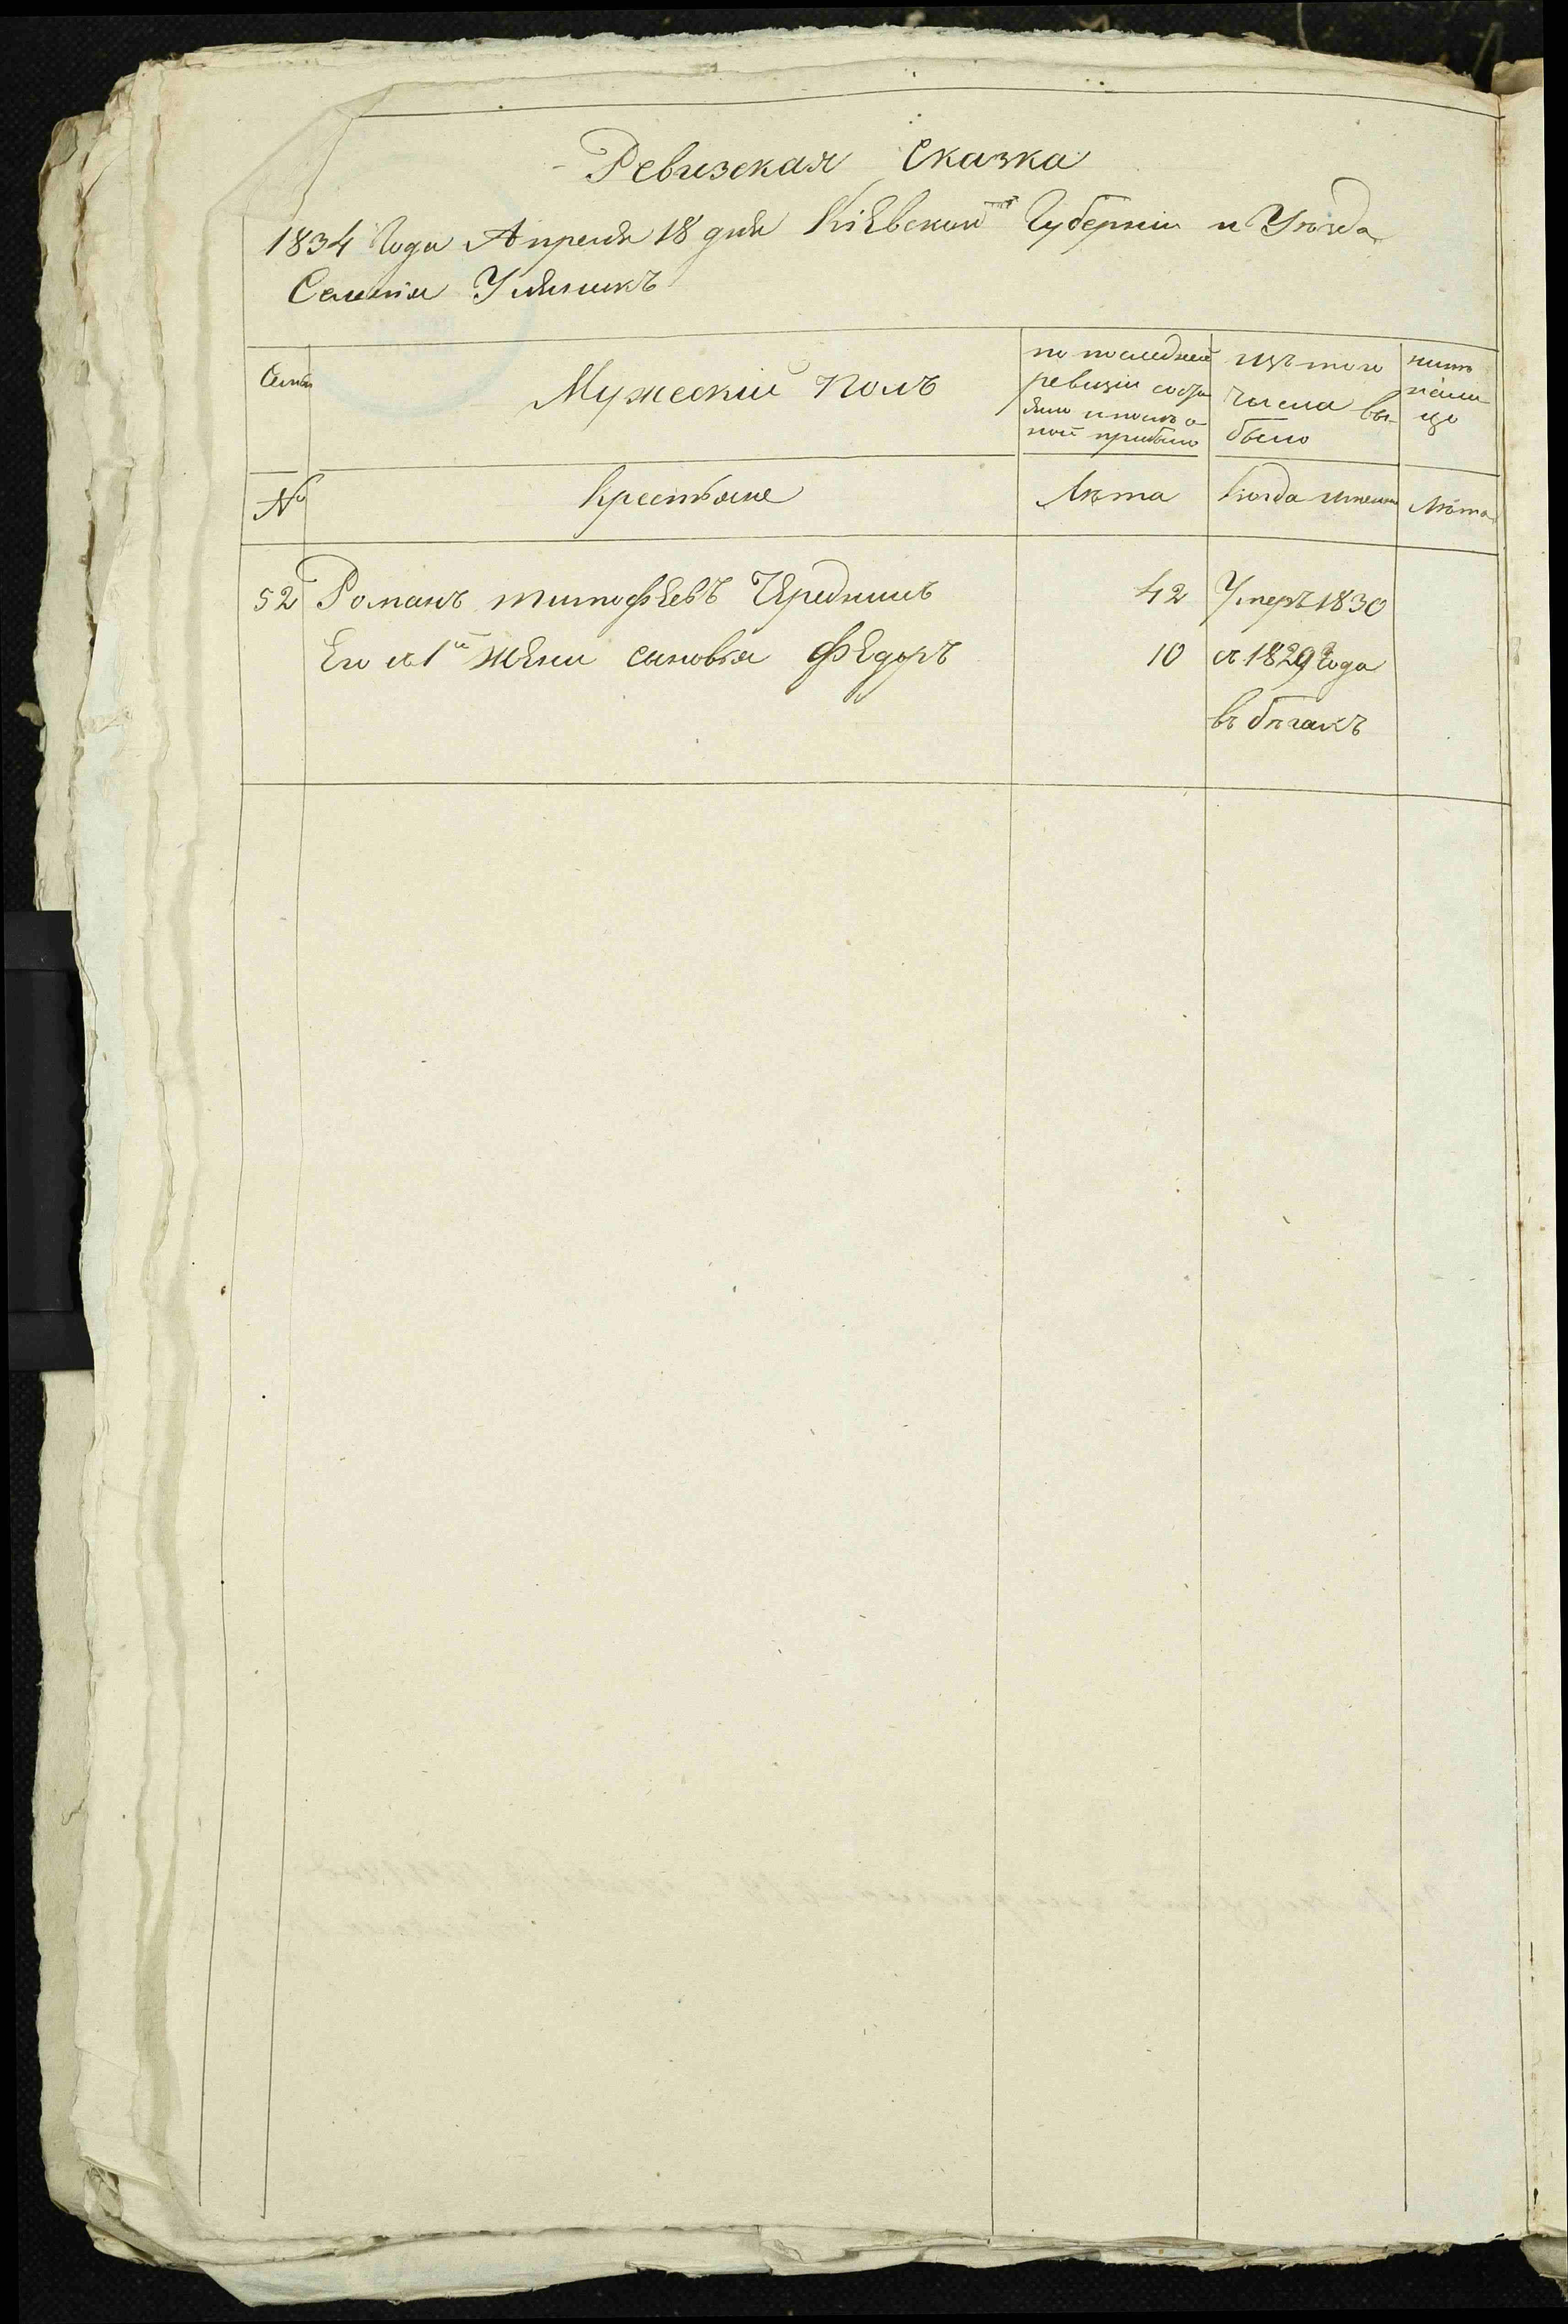 Ревизская Сказка
1834 Года Апреля 18 дня Кіевской Губерніи и Уѣзда
Селенія Уляникъ
Семьи
Мужескій Полъ
по последней ревизіи состояло и послѣ оной прибыло
изъ того числа выбыло
нынѣ налицо
№
Крестьяне
Лѣта
Когда именно
Лѣта
52 Романъ тимофѣевъ Чередникъ 42 Умеръ 1830
Его отъ 1й жены сыновья Федоръ 10 съ 1829 Года
въ бѣгахъ